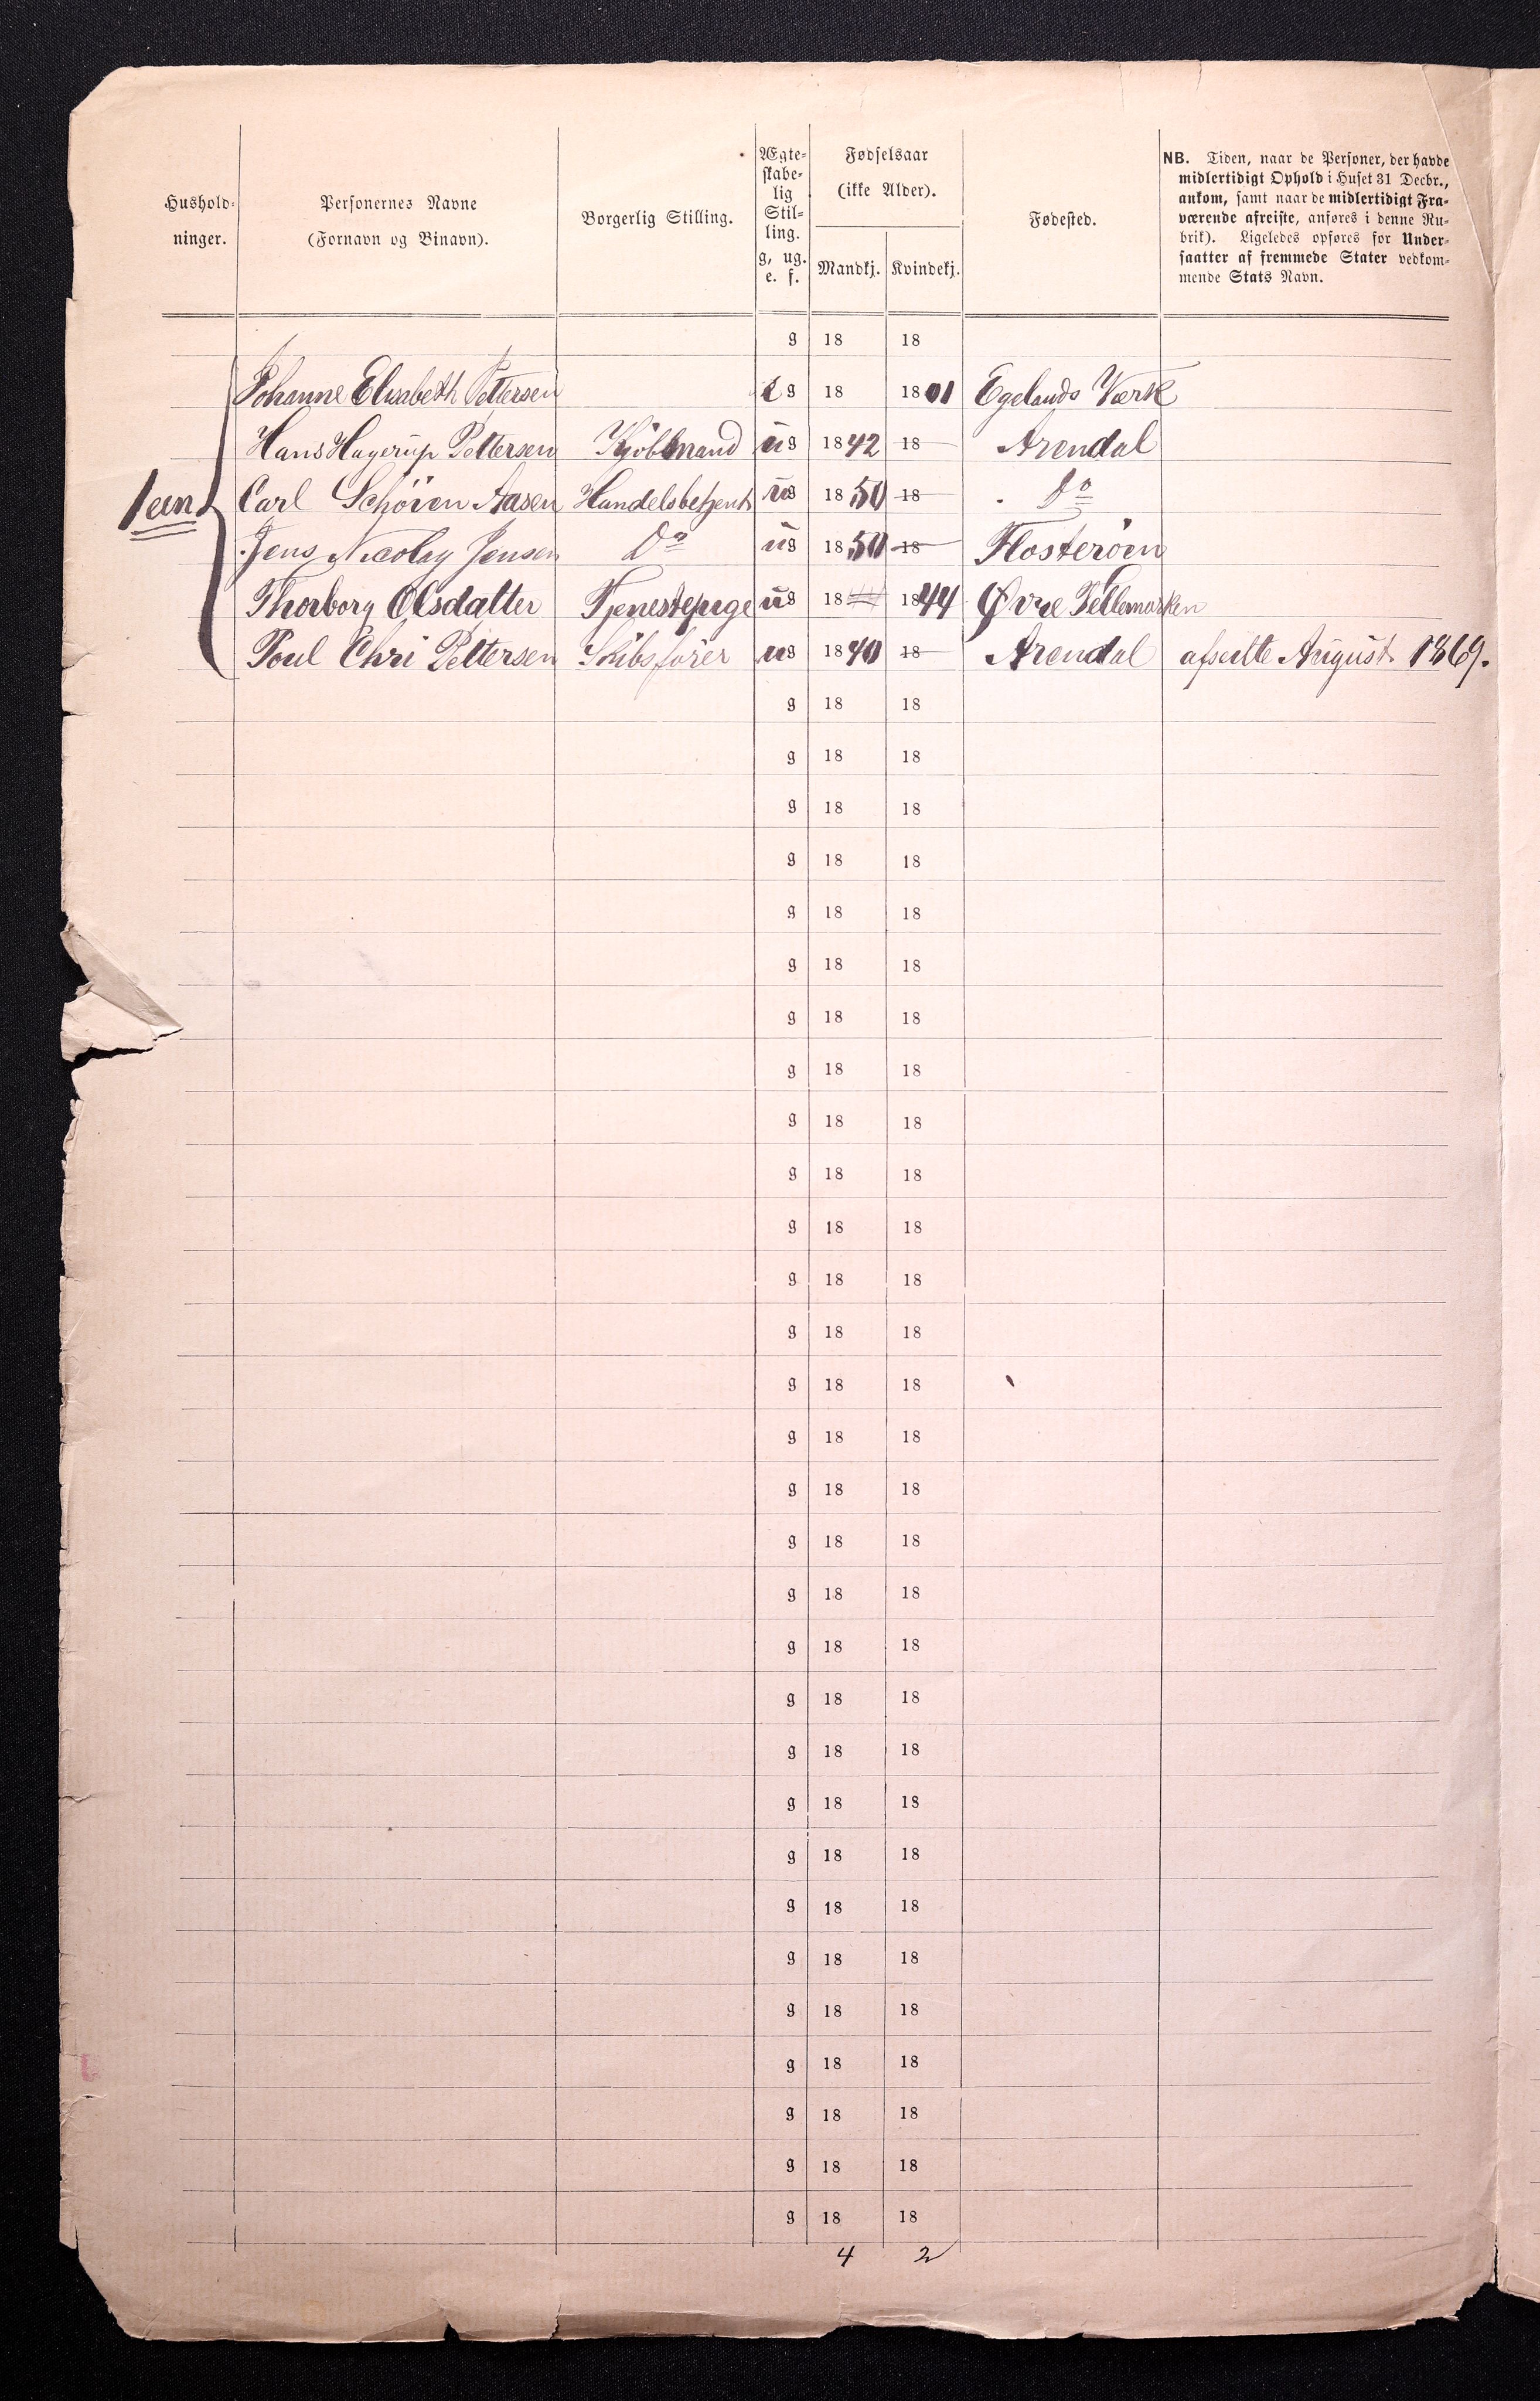 Hushold-
ninger.
Personernes Navne
(Fornavn og Binavn).
Borgerlig Stilling.
Ægte-
skabe-
lig
Stil-
ling.
g, ug.
e. f.
Fødselsaar
(ikke Alder).
Mandkj. Kvindekj.
Fødested.
NB. Tiden, naar de Personer, der havde
midlertidigt Ophold i Huset 31 Decbr.,
ankom, samt naar de midlertidigt Fra-
værende afreiste, anføres i denne Ru-
brik). Ligeledes opføres for Under-
saatter af fremmede Stater vedkom-
mende Stats Navn.
g 18 18
Johanne Elisabeth Pettersen e g 18 1801 Egelands Værk
Hans Hagerup Pettersen Kjøbmand ug 1842 18 Arendal
1 een Carl Schöien Aasen Handelsbetjent ug 1850 18 Do
Jens Nicolay Jensen Do ug 1850 18 Flosterøen
Thorborg Olsdatter Tjenestepige ug 18 1844 Øvre Tellemarken
Poul Chri Pettersen Skibsfører ug 1840 18 Arendal afseilte August 1869.
g 18 18
g 18 18
g 18 18
g 18 18
g 18 18
g 18 18
g 18 18
g 18 18
g 18 18
g 18 18
g 18 18
g 18 18
g 18 18
g 18 18
g 18 18
g 18 18
g 18 18
g 18 18
g 18 18
g 18 18
g 18 18
g 18 18
g 18 18
g 18 18
g 18 18
g 18 18
g 18 18
g 18 18
g 18 18
g 18 18
4 2